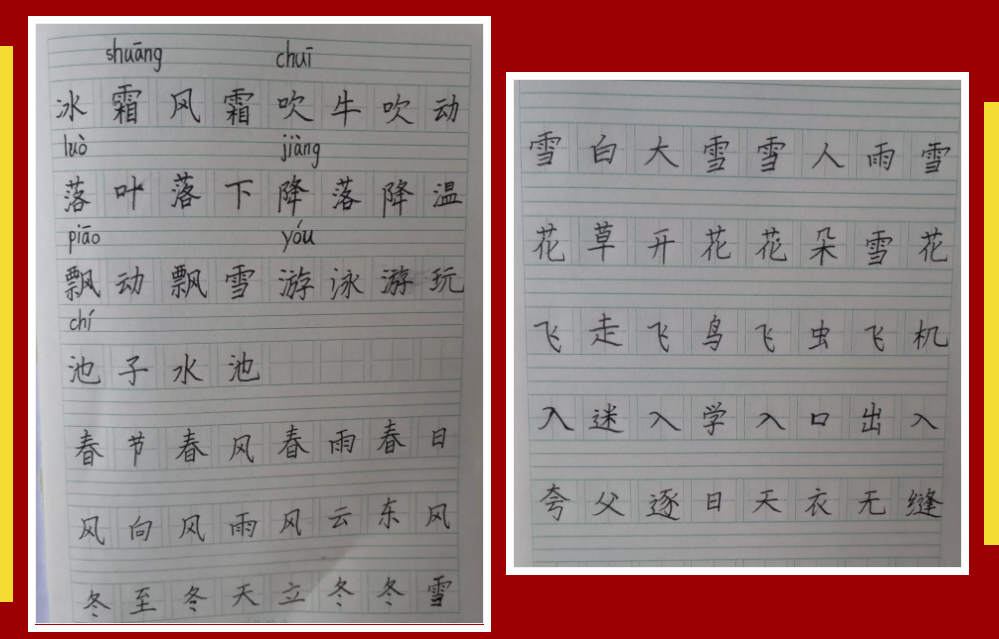 shuāng chuī
冰霜风霜吹牛吹动
luò jiàng
落叶落下降落降温
piāo yóu
飘动飘雪游泳游玩
chí
池子水池
春节春风春雨春日
风向风雨风云东风
冬至冬天立冬冬雪
雪白大雪雪人雨雪
花草开花花朵雪花
飞走飞鸟飞虫飞机
入迷入学入口出入
夸父逐日天衣无缝